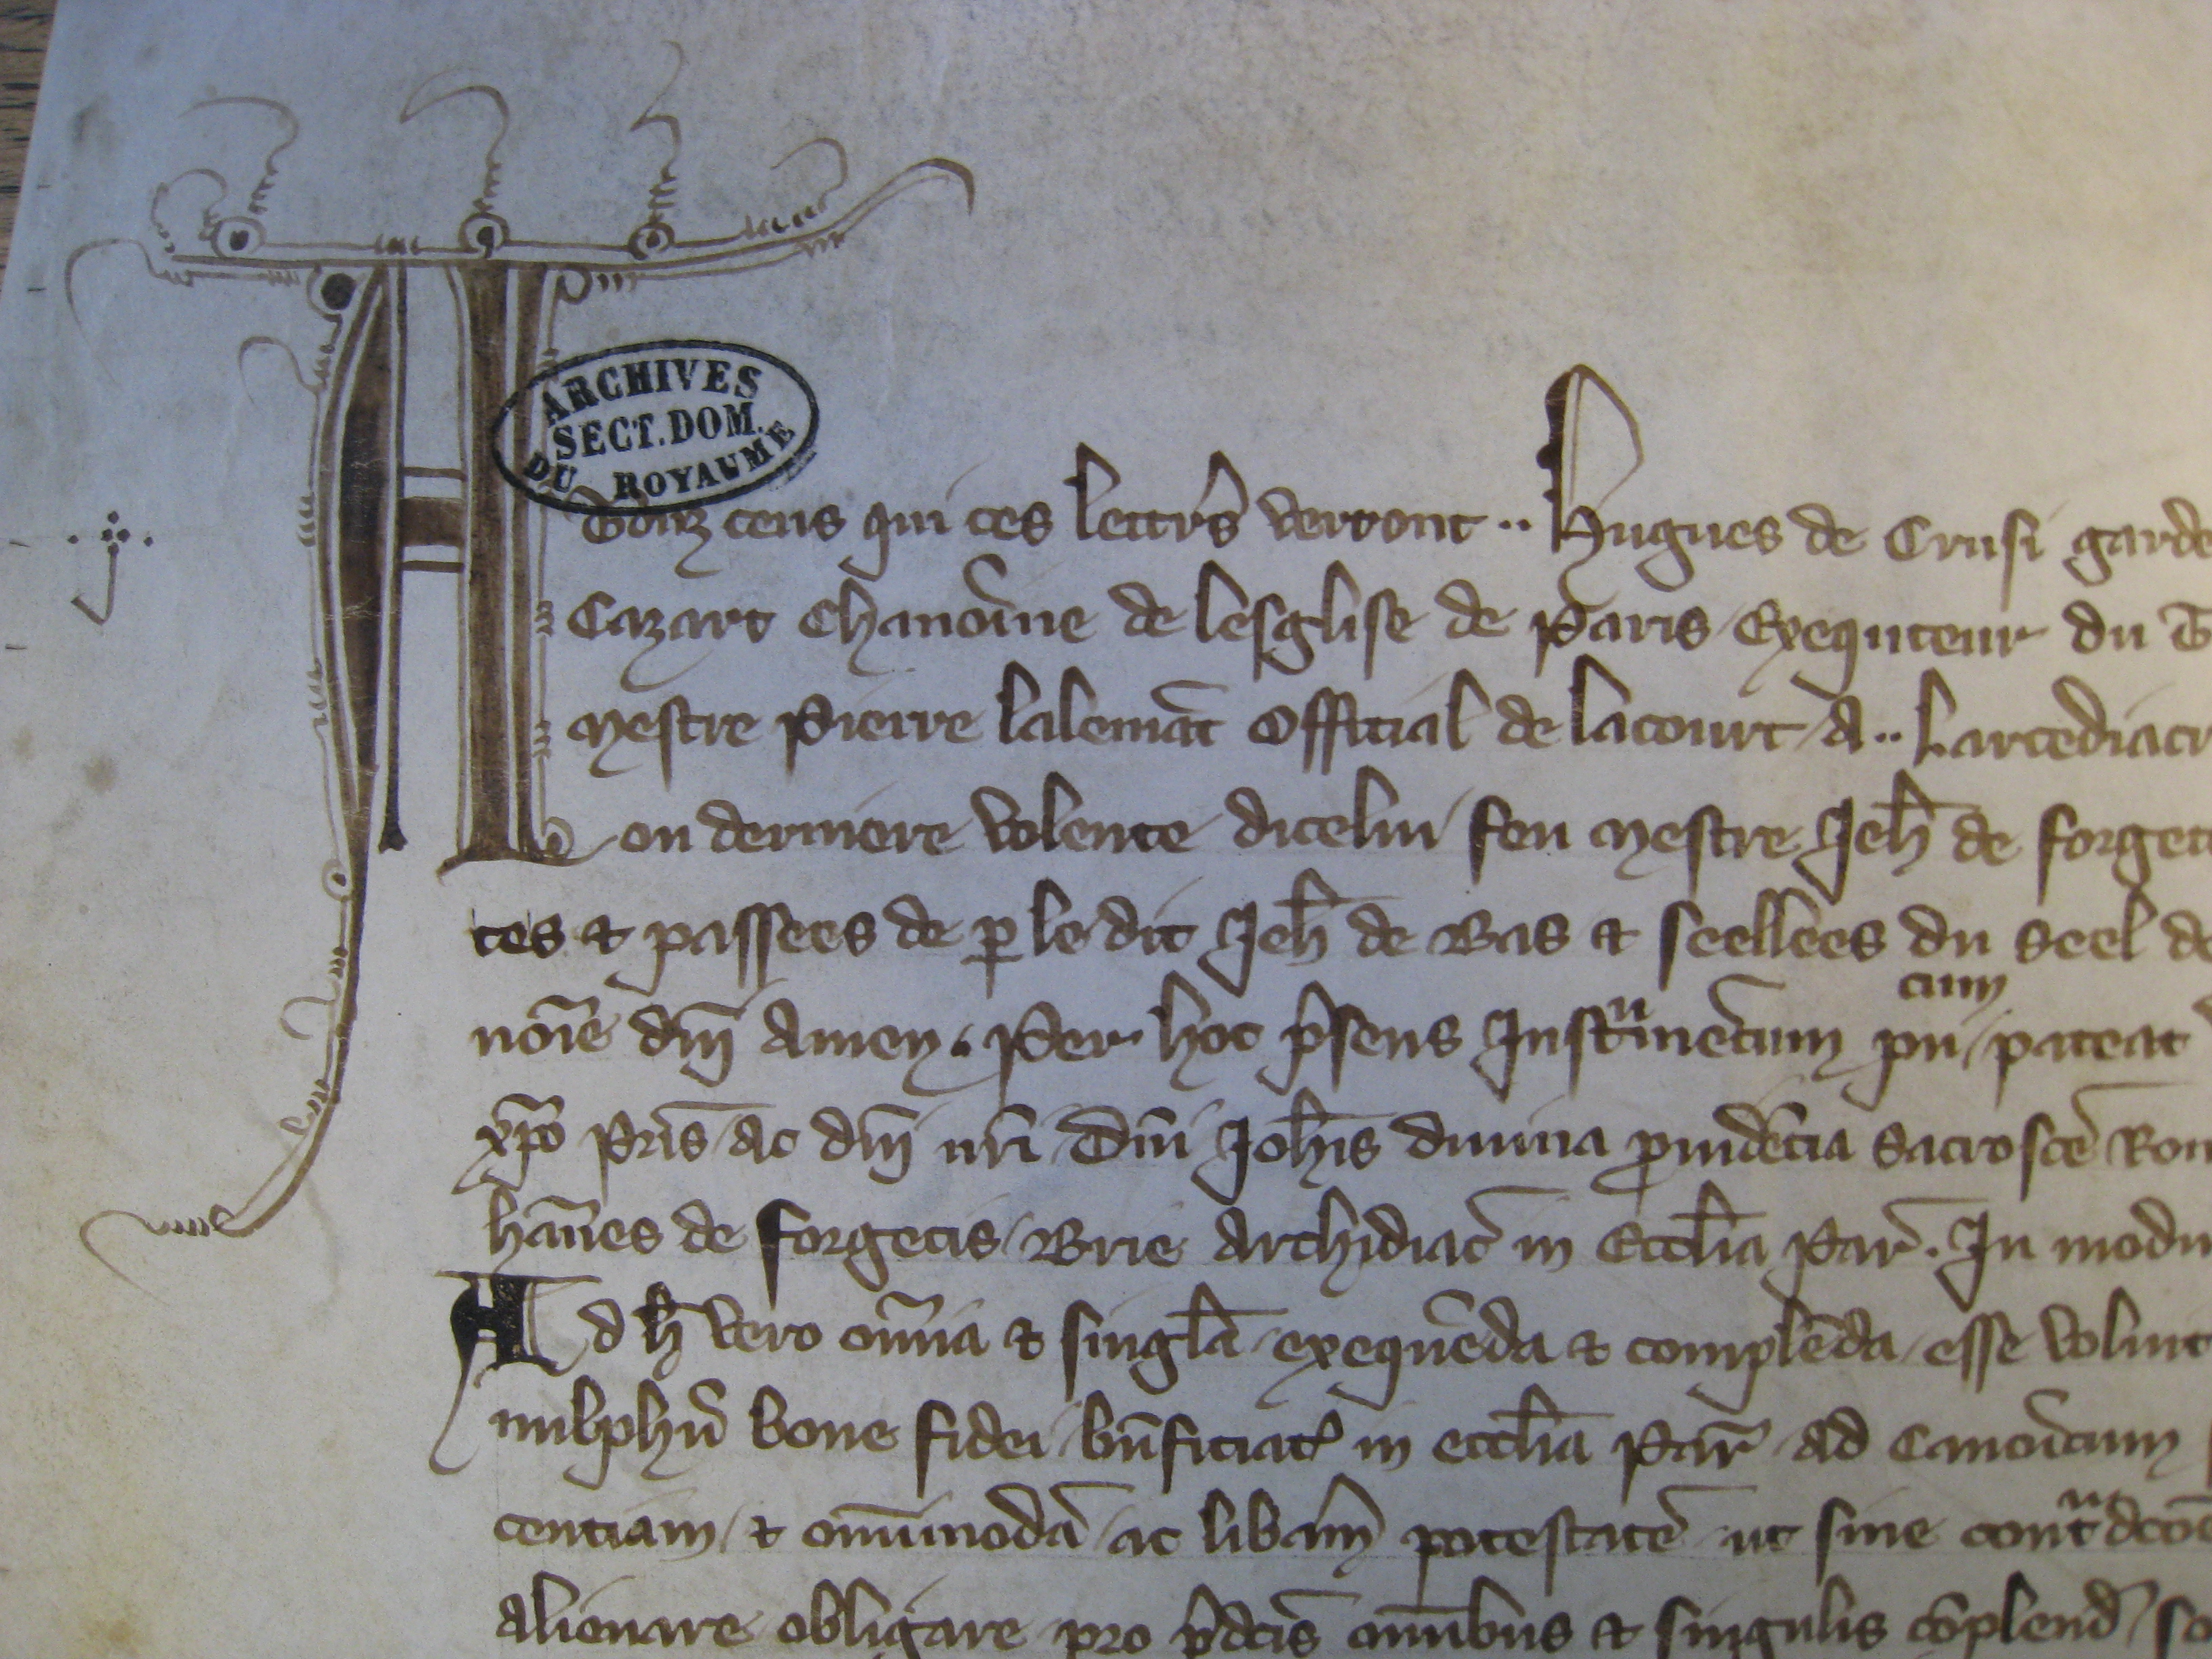 ARCHIVES
SECT. DOM.
DU ROYAUME
A Touz ceus qui ces lettrs verront .. Hugues de Crusi garde
Cazart Chanoine de lesglise de Paris Exequteur du
Mestre Pierre lalemāt Official de lacourt a .. Larcediacr
on derniere volente dicelui feu Mestre Jeh̄ de forget
tes et passees de p̱ ledit Jeh̄ de Bas et seellees du seel de
noīe dnī Amen. Per hoc p̄sens Instumētum cum pateat
xp̄o Pris̄ ac dnī nrī Dnī Joh̄is diuina ꝓuidētia Sacroscē Rom
han̄es de forgetis Brie Archidiac̄ in Eccl̄ia Par̄. In modu
Ad h̄ vero om̄ia et singl̄a exequēda et complēda esse voluit
bone fidei bn̄ficiat in eccl̄ia Par̄ ad Canoīcum
centiam et omīmodā ac lib̄am potestatē ut sine
alienare obligare pro p̄dcīs omībus et singulis cōplend